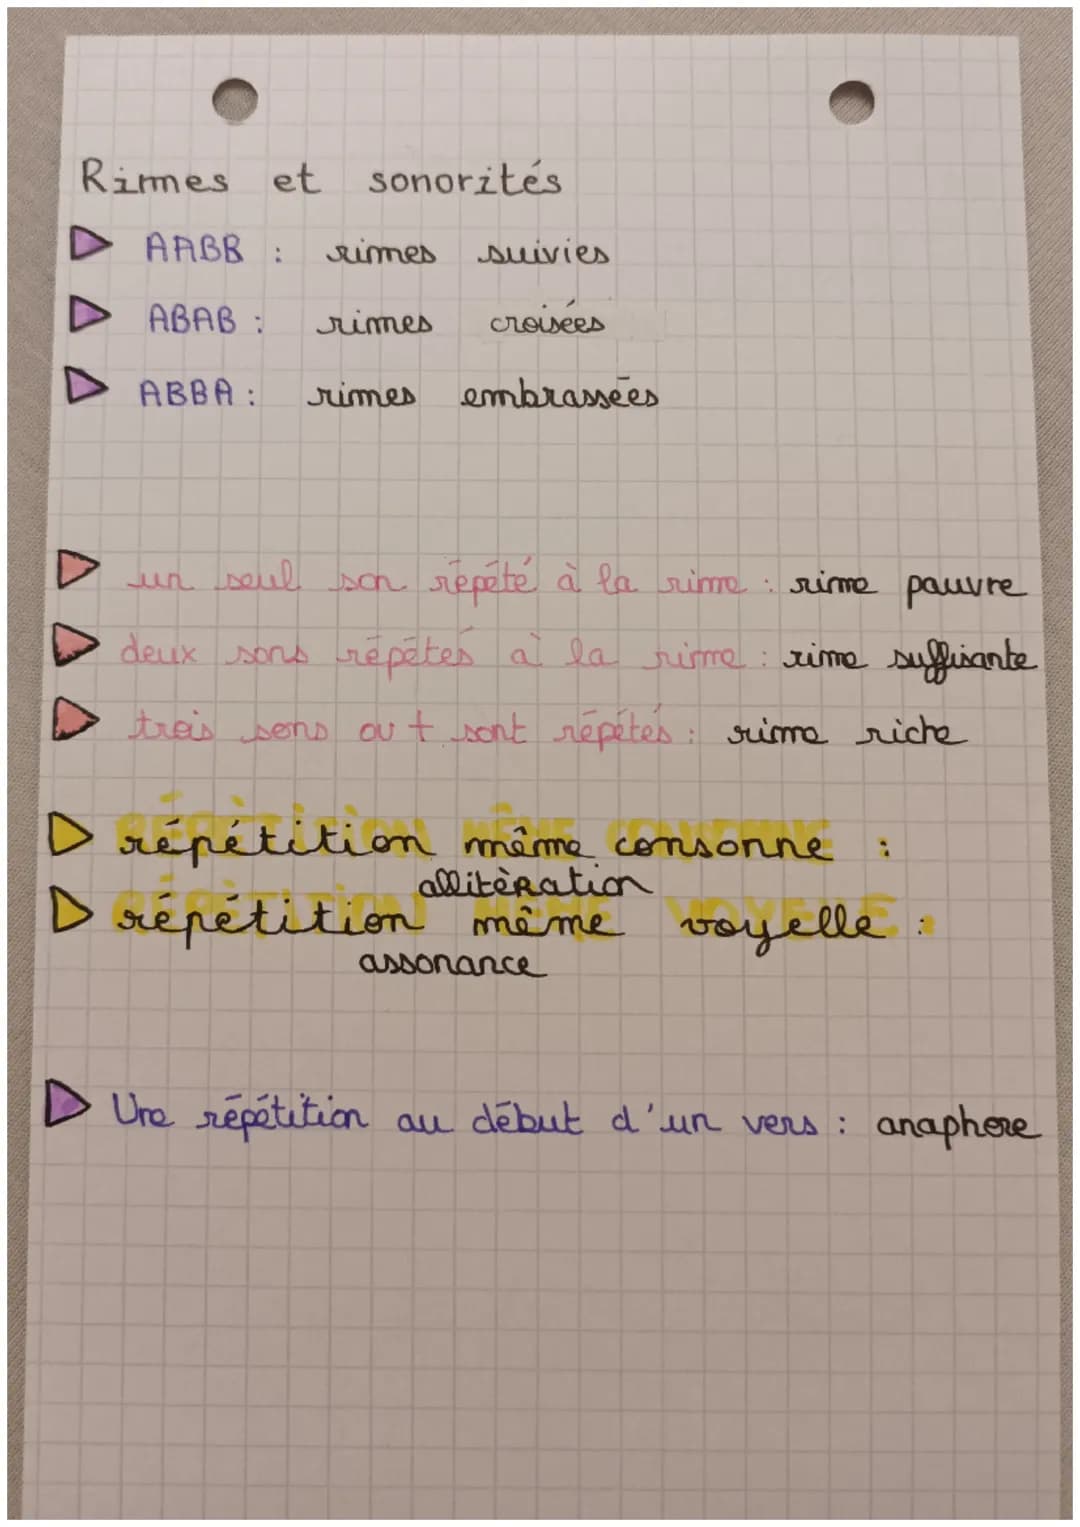 Rimes et sonorités
AABB : rimes suivies
ABAB : rimes croisées
ABBA : rimes embrassées
un seul son répété à la rime : rime pauvre
deux sons répétés à la rime : rime suffisante
trois sons ou + sont répétés : rime riche
répétition même consonne :
allitération
répétition même voyelle :
assonance
Une répétition au début d'un vers : anaphore